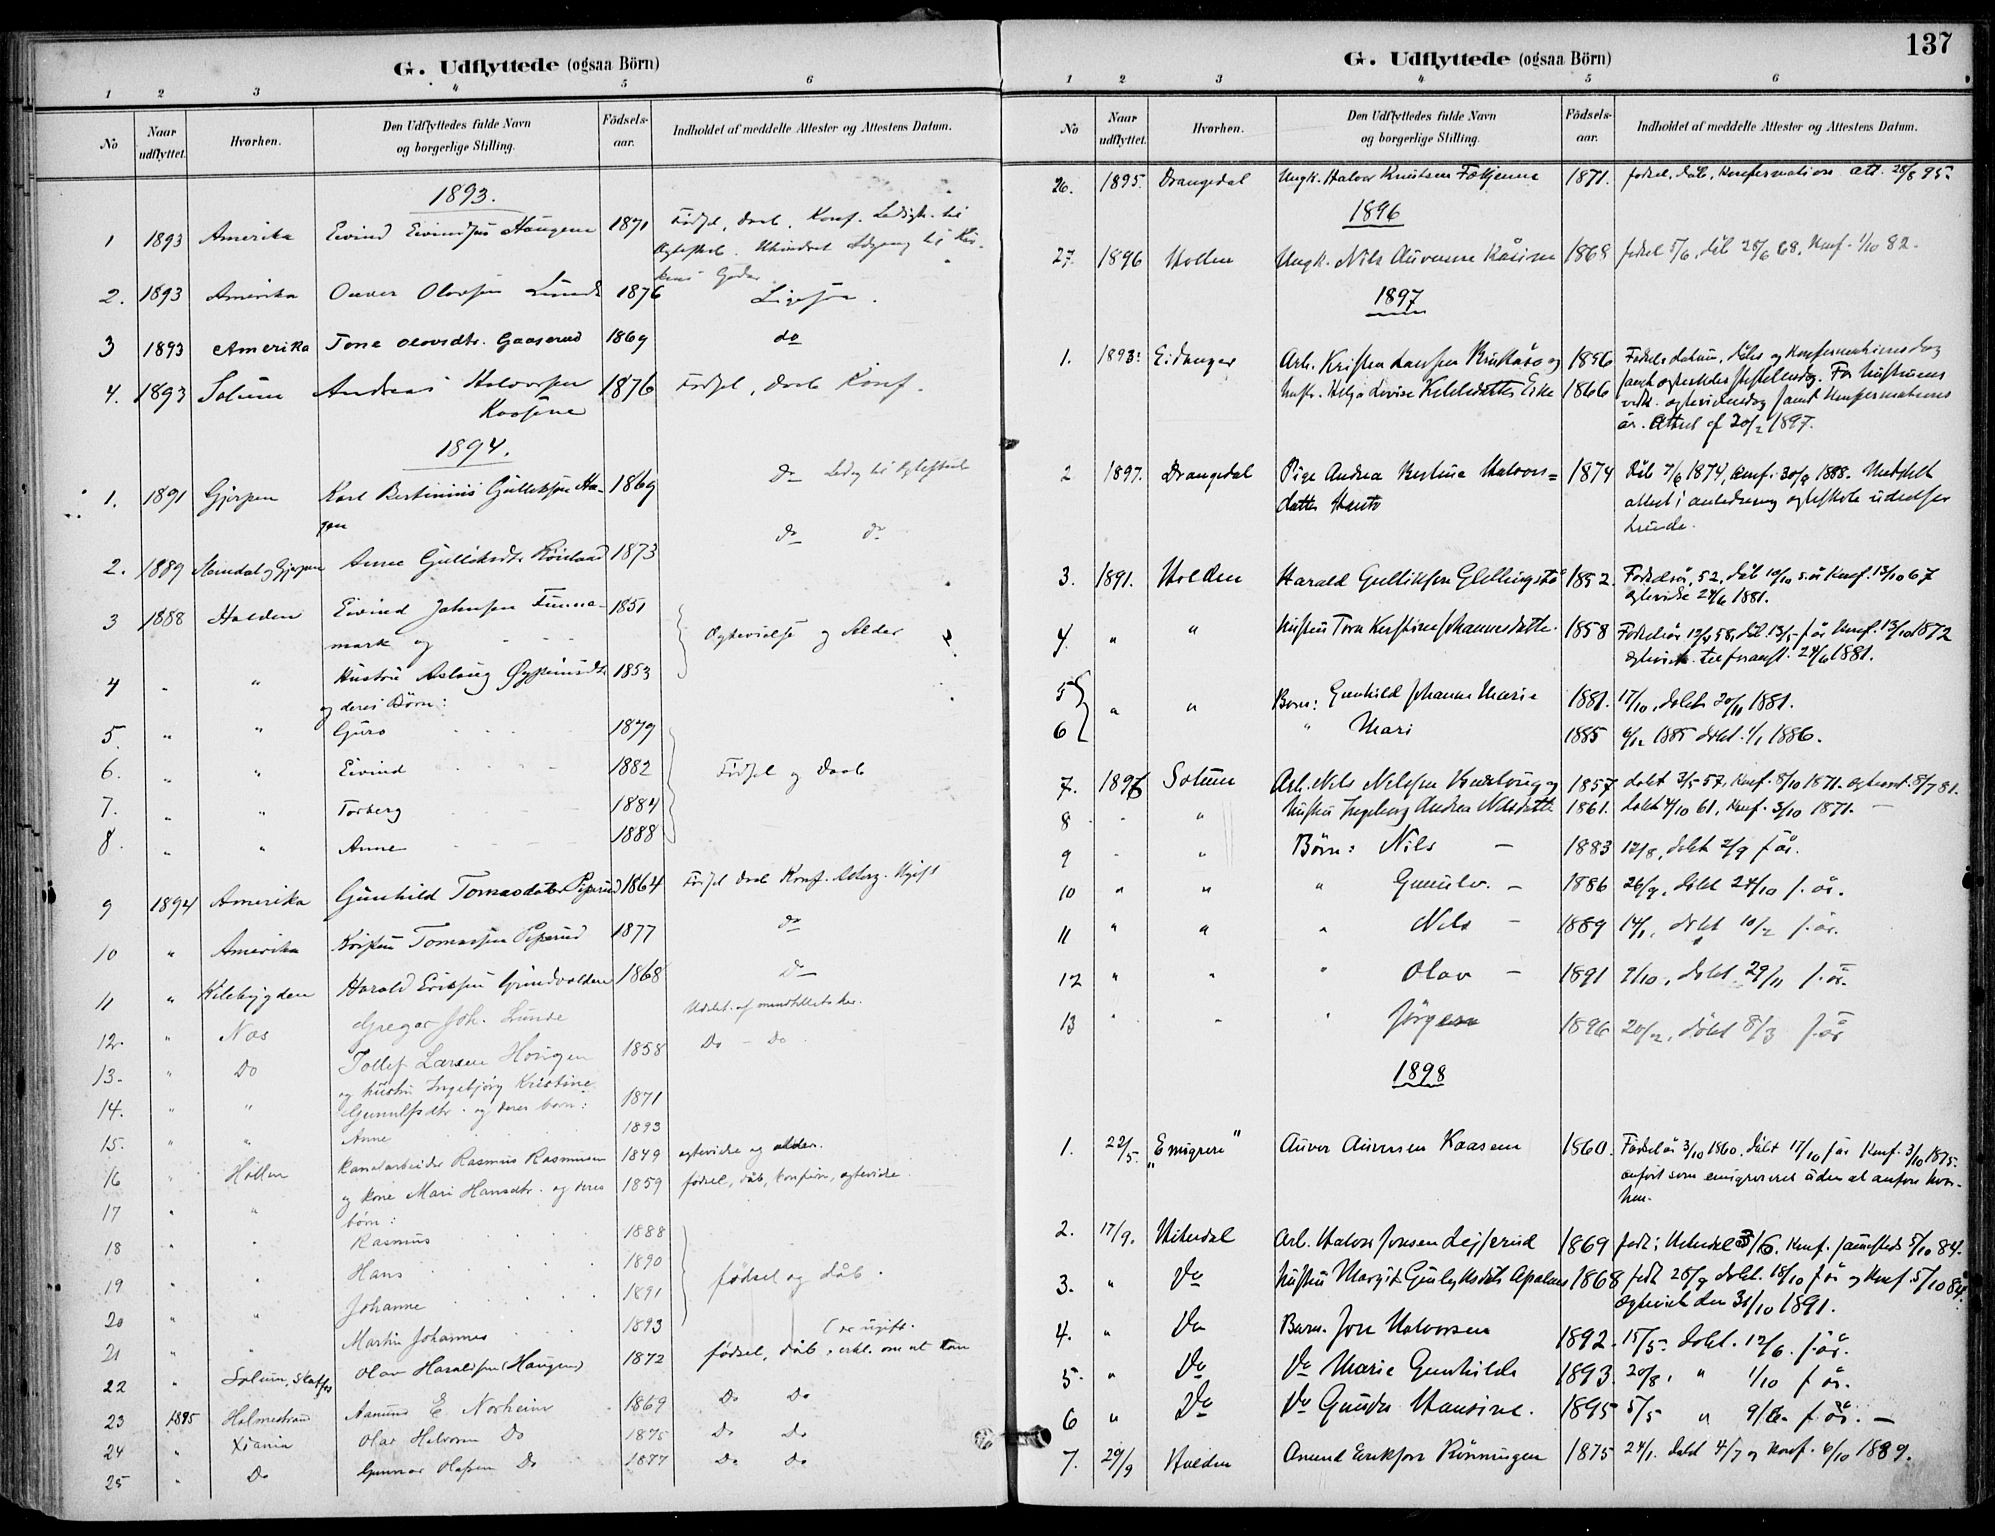 G. Udflyttede (ogsaa Börn)
1 2 3 4 5 6
No
Naar udflyttet.
Hvorhen.
Den Udflyttedes fulde Navn og borgerlige Stilling.
Fødsels-aar.
Indholdet af meddelte Attester og Attestens Datum.
1893.
1 1893 Amerika Eivind Eivindsen Haugene 1871 Fødsel, Daab, Konf. Ledigh. til
Ægteskab. Uhindret Adgang til Kir-
kens Goder
2. 1893 Amerika Olavsen Lunde 1876 Ligesaa.
3 1893 Amerika Tone Olavsdtr. Gaaserud 1869 do
4. 1893 Solum Andreas Halvorsen 1876 Fødsel, Daab Konf.
Kaasene
1894.
1. 1891 Gjerpen Karl Bertinius Gulliksen Ha- 1869 Do Ledig til Ægteskab
gen
2. 1889 Gjerpen Anne Gulliksdtr. 1873 Do Do
3 1888 Holden Eivind Johnsen Finne- 1851 Ægtevielse og Alder
mark og
4 " " Hustru Aslaug 1853
og deres Børn:
5. " " Guro 1879
6. " " Eivind 1882 Fødsel og Daab
7. " " Torberg 1884
8. " " Anne 1888
9 1894 Amerika Gunhild Tomasdatter Piperud 1864 Fødsel Daab Konf. Ugift
10 " Amerika Kristen Tomassen Piperud 1877 Do
11 " Kilebygden Harald Eriksen Grindvolden 1868 Do
12. " Næs Gregar Joh. Lunde
13. " Do Tollef Larsen Haugen 1858 Do - Do
og hustru Ingebjørg Kristine
14. " " Gunnulfsdtr. og deres børn: 1871
15. " " Anne 1893
16 " Hollen Kanalarbeider Rasmus Rasmusen 1849 ægtevielse og alder.
17 " " og kone Mari Hansdtr. og deres 1859 fødsel, dåb, konfirm, ægtevielse.
børn:
18 " " Rasmus 1888
19 " " Hans 1890 fødsel og dåb.
20 " " Johanne 1891
21 " " Martin Johannes 1893 (er ugift.
22 " Solum, Olav Haraldsen (Haugen) 1872 fødsel, dåb, erkl. om at han
23 1895 Holmestrand Aanund E Norheim 1869 Do Do
24 " Xiania Olav Halvorsen Do 1875 Do Do
25 " Do Gunnar Olafsen Do 1877 Do Do
137
G. Udflyttede (ogsaa Börn)
1 2 3 4 5 6
No
Naar udflyttet.
Hvorhen.
Den Udflyttedes fulde Navn og borgerlige Stilling.
Fødsels-aar.
Indholdet af meddelte Attester og Attestens Datum.
26. 1895. Drangedal Ungk. Halvor Knutsen 1871. fødsel, dåb, konfirmation att. 28/8 95.
1896
27. 1896 Hollen Ungk. Nils Auvensen Kåsine 1868 født 5/6, døbt 28/6 68, konf. 1/10 82.
1897
1. 1893: Eidanger Arb. Kristen Larssen og 1856 Fødselsdatum, dåbs og konfirmationsdag
hustr. Helga Lovise Kittilsdatter Eike 1866 samt For hustruens
vedk. samt konfirmations
år. Attest af 20/2 1897.
2 1897. Drangedal Pige Andrea Bertine Halvors= 1874 Dåb 7/6 1874, konf. 30/9 1888. Meddelt
datter attest i anledning ægteskabs indgåelse
3. 1891. Holden Harald Gulliksen 1852. Fødselsår, 52, dåb 10/10 s.å konf. 13/10 67
ægteviede 24/6 1881.
4. " " hustru Tora Kirstine Johannesdatter. 1858 13/5 s. år konf. 13/10 1872
24/6 1881.
5 " " Barn: Gunhild Johanne Marie 1881. 17/10, døbt 20/11 1881.
6 " Mari 1885 6/12 1885 døbt 1/1 1886.
7. 1896 Solum Arb. Nils Nilssen og 1857 døbt 3/5 57, konf. 8/10 1871. 8/7 81.
8 " " hustru Ingeborg Andrea Nilsdatter 1861. døbt 4/10 61, konf. 3/10 1871. —
9 " " Børn: Nils — 1883 12/8, døbt 2/9 s år.
10 " " " Gunulv. — 1886 26/9, døbt 24/10 s. år.
11 " " " Nils — 1889 14/1, døbt 10/2 s. år.
12 " " " Olav — 1891 9/10, døbt 29/11 s. år.
13 " " " Jörgen 1896 20/2, døbt 8/3 s. år
1898
1. 22/5. "Emigrere" Auver Auversen Kaasene 1860. Fødselsår 3/10 1860, døbt 17/10 s år konf. 3/10 1875.
anført som emigreret uden at anføre hvor-
hen.
2. 17/9. Hiterdal Arb. Halvor Jonsen 1869 født i Hiterdal 3/6. konf. sammesteds 5/10 84.
3. " Do hustru Margit 1868 født 25/9 døbt. 18/10 s år og konf. 5/10 84.
Ægteviet den 31/10 1891.
4. " Do Barn. Jon Halvorsen 1892. 15/5 døbt. 12/6. s. år.
5. " Do Do Marie Gunhilde 1893. 20/8, " 1/10 s år.
6 " Do Do Gunda Hansine. 1895 5/5 " 9/6 s år. —
7. 29/9 Holden Anund Eriksen Rönningen 1875 24/1. døbt 4/7 og konf. 6/10 1889.